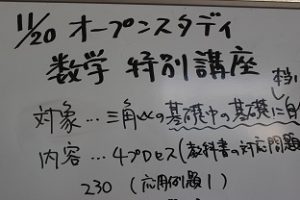 11/20 オープンスタディ
数学 特別講座
本当に
対象…三角比の基礎中の基礎に自
内容…4プロセス(教科書の対応問題
230 (応用例題1)